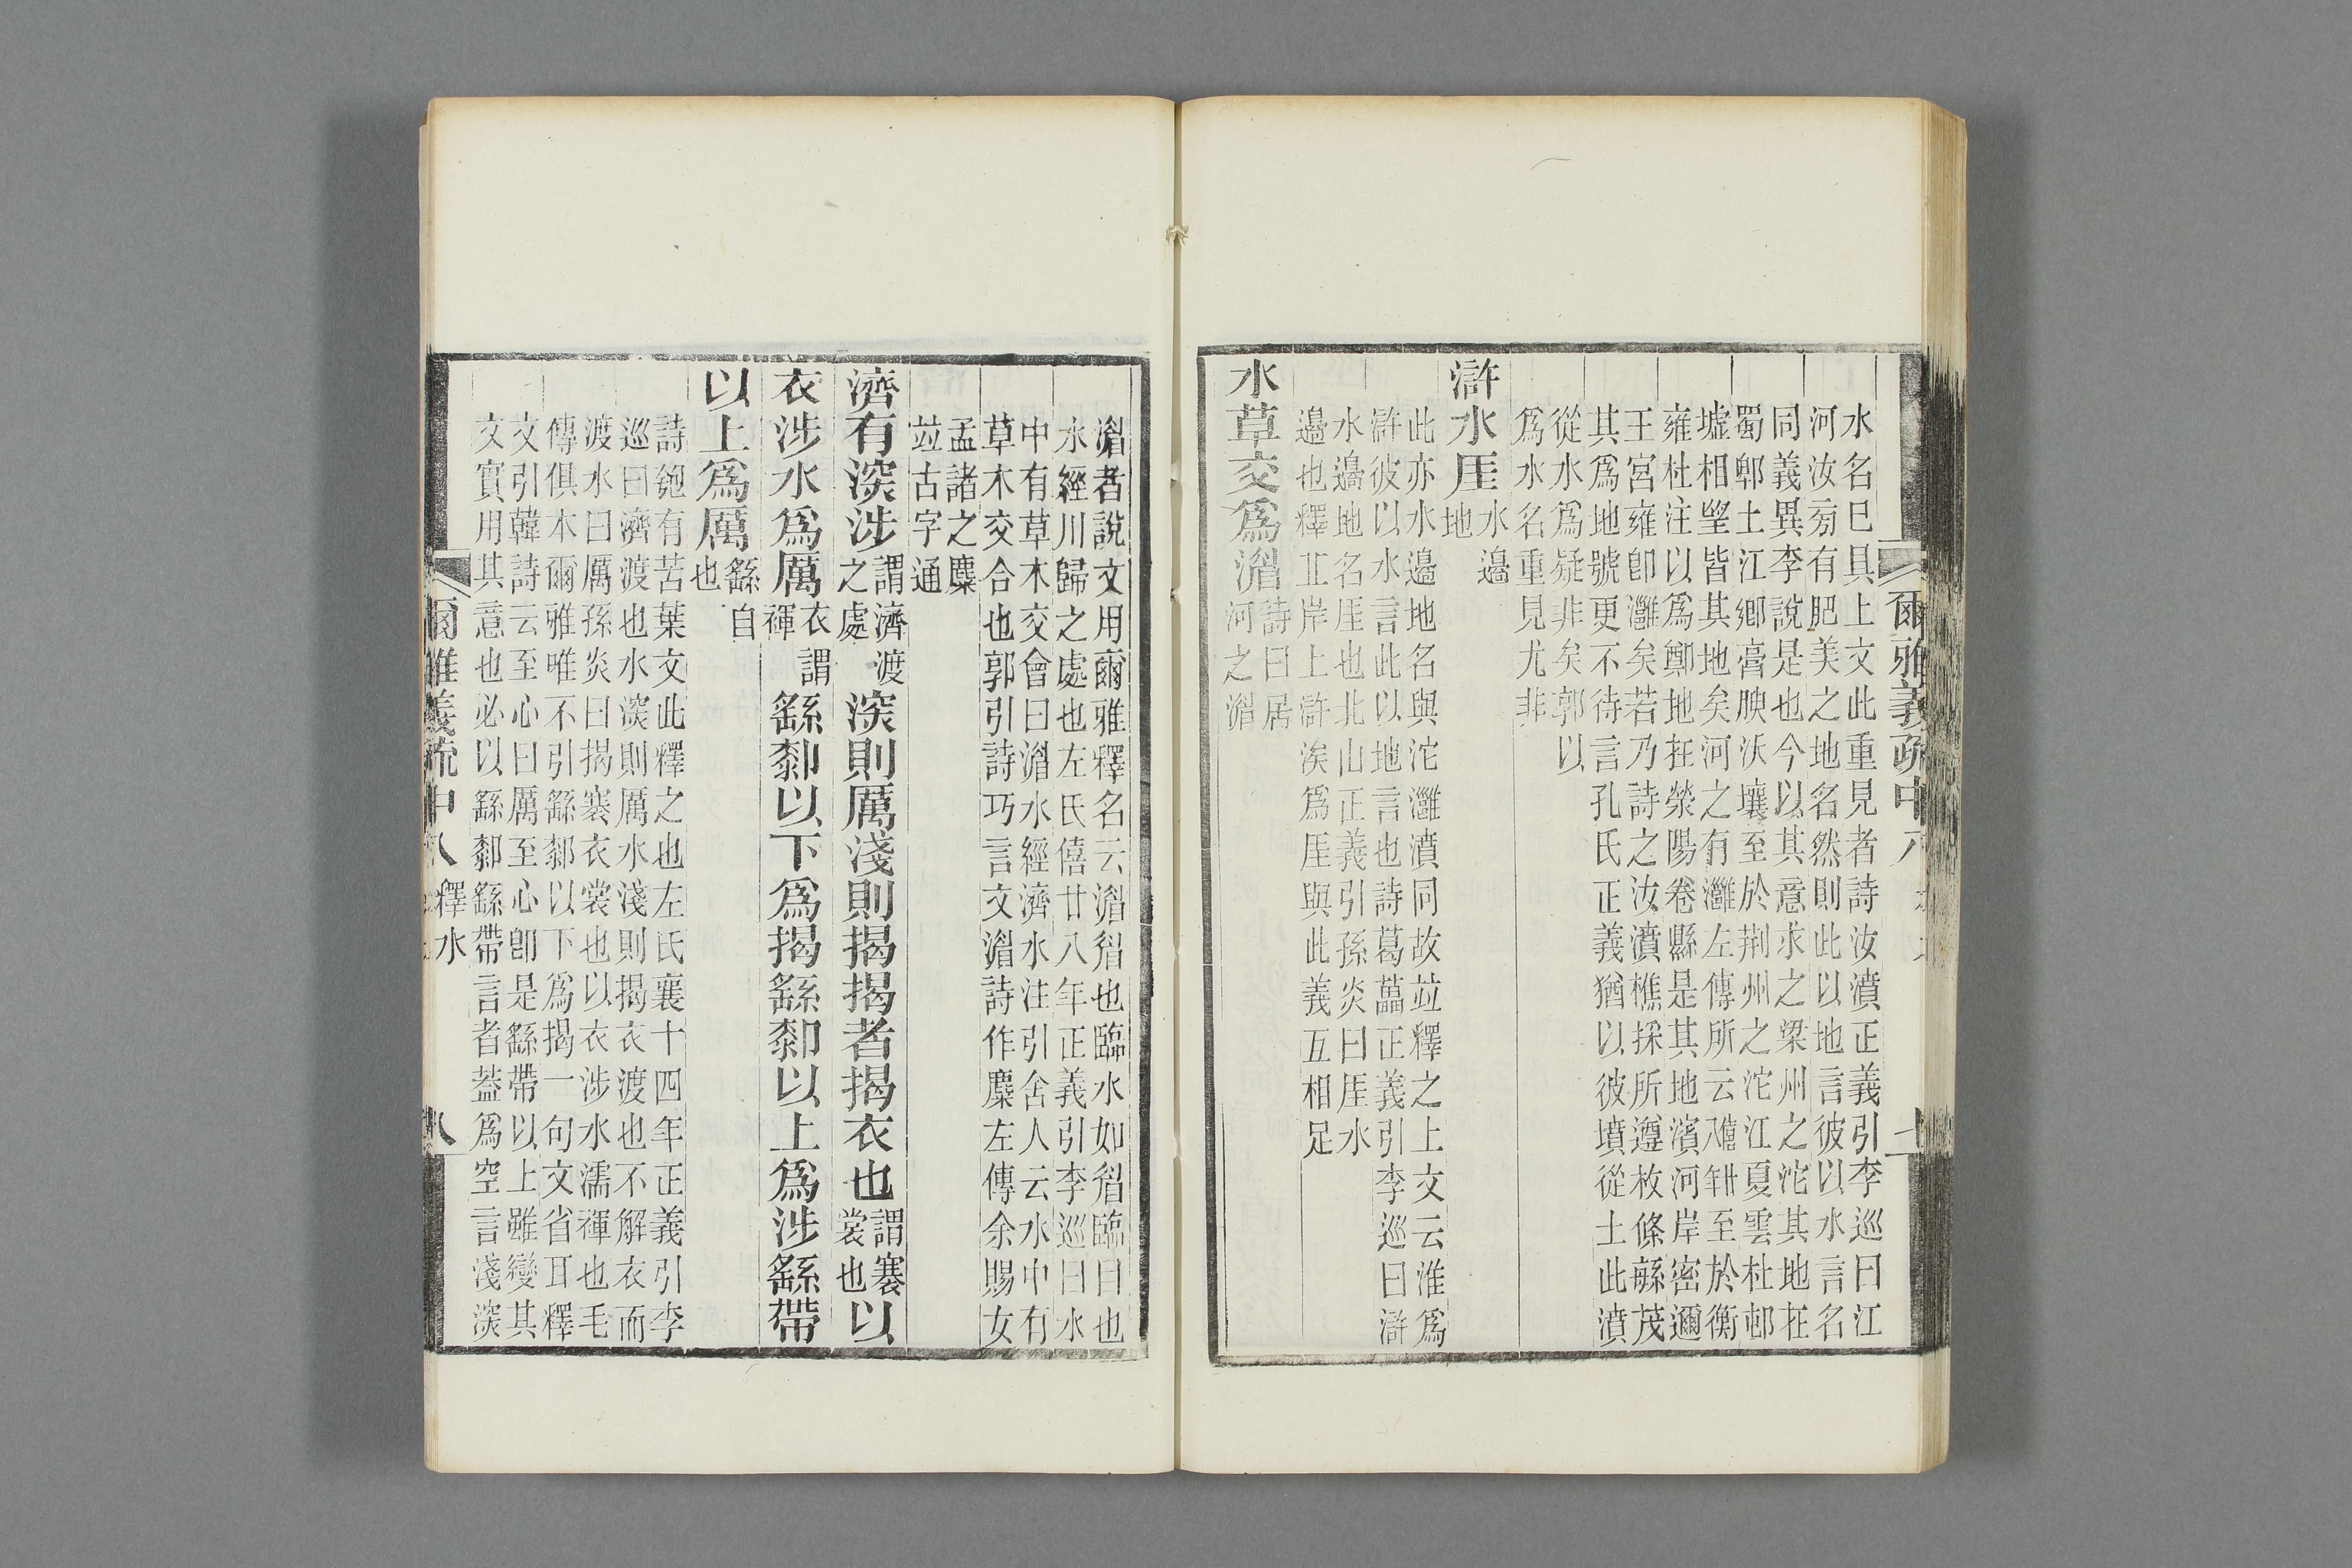 爾雅義疏中
水名巳具上文此重見者詩汝濆正義引李巡曰江
河汝菊有肥美之地名然則此以地言彼以水言名
同義異李說是也今以其意求之梁州之沱其地在
蜀郫土江鄉膏腴沃壤至於荆州之沱江夏雲杜邨
墟相朢皆其地矣河之有灉左傳所云至於衡
雍杜注以爲鄭地在滎陽卷縣是其地濱河岸密邇
王宮雍卽灉矣若乃詩之汝濆樵採所遵枚條蘇茂
其爲地號更不待言孔氏正義猶以彼墳從土此濆
從水爲疑非矣郭以
爲水名重見尤非
滸水厓水邉
地
此亦水邉地名與沱灉濆同故竝釋之上文云淮爲
滸彼以水言此以地言也詩葛藟正義引李巡曰滸
水邉地名厓也北山正義引孫炎曰厓水
邉也釋丠岸上滸涘爲厓與此義互相足
水草交爲湄詩曰居
河之湄
湄者說文用爾雅釋名云湄睂也臨水如睂臨目也
水經川歸之處也左氏僖廿八年正義引李巡曰水
中有草木交會曰湄水經濟水注引舍人云水中有
草木交合也郭引詩巧言文湄詩作麋左傳余賜女
孟諸之麋
竝古字通
濟有深涉謂濟渡
之處深則厲淺則揭揭者揭衣也謂褰
裳也以
衣涉水爲厲衣謂
褌繇厀以下爲揭繇厀以上爲涉繇帶
以上爲厲繇自
也
詩匏有苦葉文此釋之也左氏襄十四年正義引李
巡曰濟渡也水深則厲水淺則揭衣渡也不解衣而
渡水曰厲孫炎曰揭褰衣裳也以衣涉水濡褌也毛
傳俱本爾雅唯不引繇厀以下爲揭一句文省耳釋
文引韓詩云至心曰厲至心卽是繇帶以上雖變其
文實用其意也必以繇厀繇帶言者葢爲空言淺深
爾雅義疏中八 釋水 八